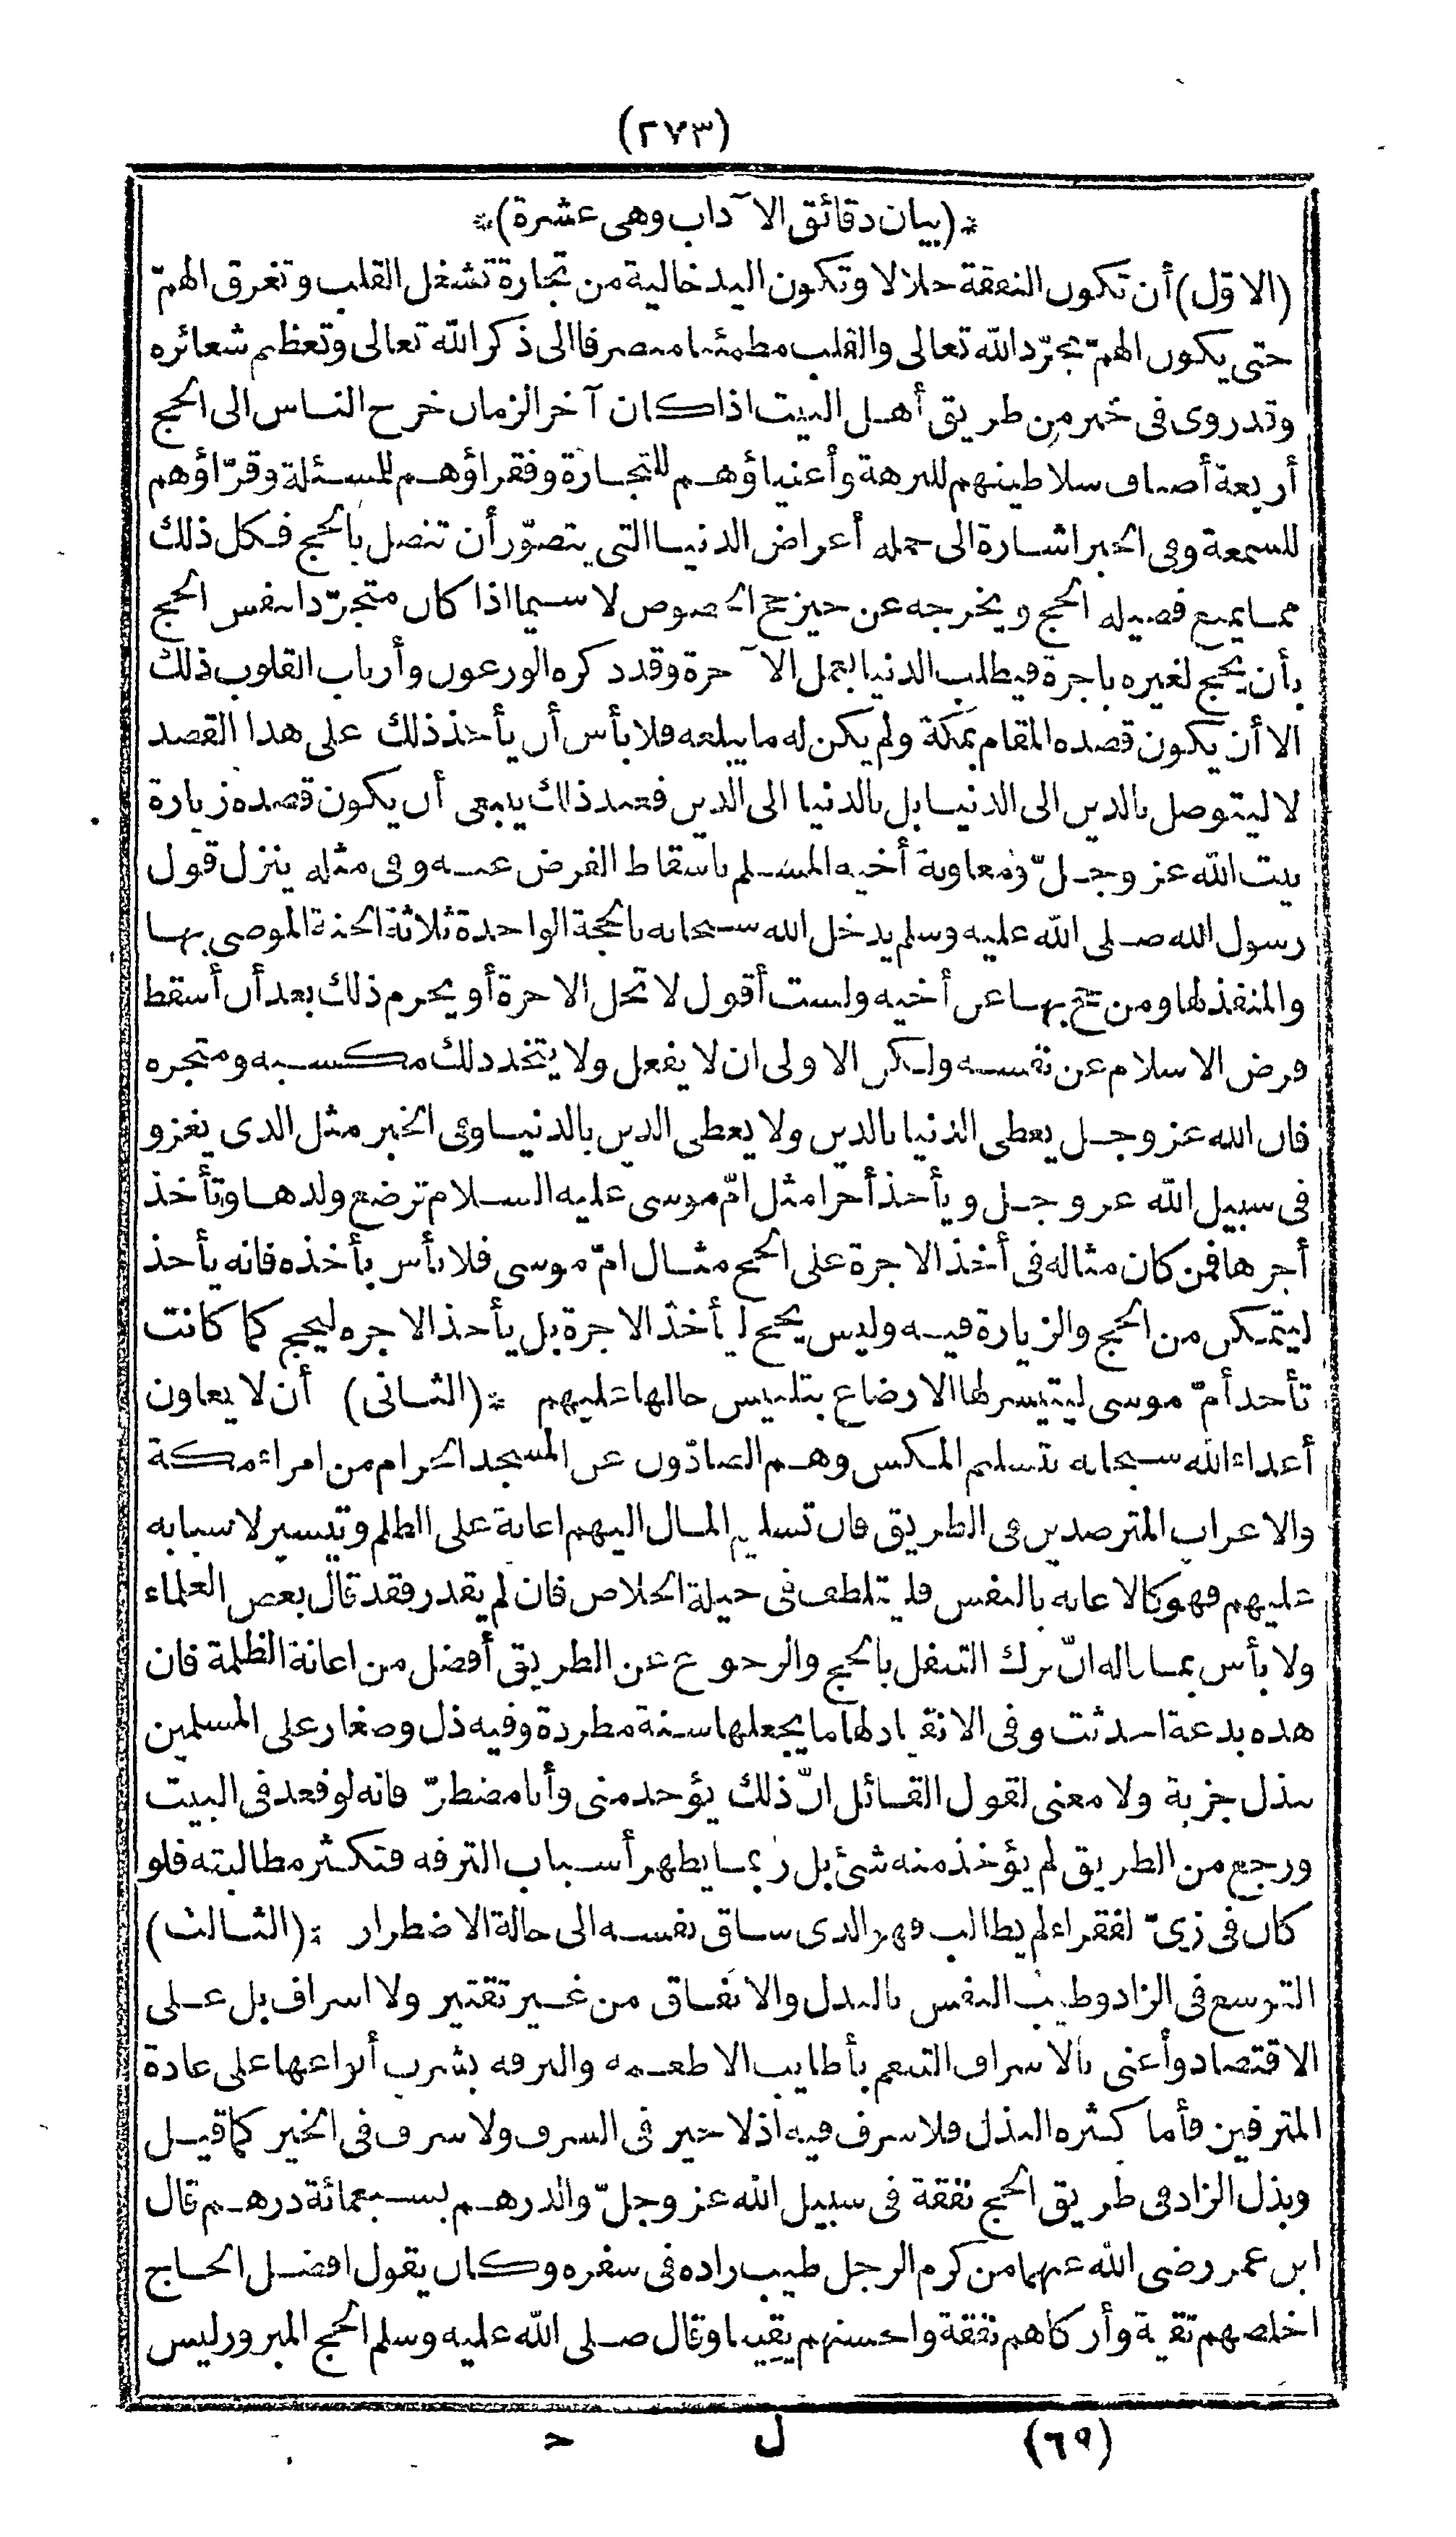 (٢٧٣)
*(بيان دقائق الآداب وهى عشرة)*
(الاوّل) أن تكون النفقة حلالا وتكون اليد خالية من تجارة تشغل القلب وتغرق الهمّ
حتى يكون الهمّ مجرّد الله تعالى والقلب مطمئنا منصرفا الى ذكر الله تعالى وتعظيم شعائره
وقد روى فى خبر من طريق أهل البيت اذا كان آخر الزمان خرج الناس الى الحج
أربعة أصناف سلاطينهم للنزهة وأغنياؤهم للتجارة وفقراؤهم للمسئلة وقرّاؤهم
للسمعة وفى الخبر اشارة الى جملة أعراض الدنيا التى يتصوّر أن تتصل بالحج فكل ذلك
مما يمنع فضيلة الحج ويخرجه عن حيز حج الخصوص لا سيما اذا كان متجرّدا بنفس الحج
بأن يحج لغيره باجرة فيطلب الدنيا بعمل الآخرة وقد كره الورعون وأرباب القلوب ذلك
الا أن يكون قصده المقام بمكة ولم يكن له ما يبلغه فلا بأس أن يأخذ ذلك على هذا القصد
لا ليتوصل بالدين الى الدنيا بل بالدنيا الى الدين فعند ذلك ينبغى أن يكون قصده زيارة
بيت الله عز وجلّ ومعاونة أخيه المسلم باسقاط الفرض عنه وفى مثله ينزل قول
رسول الله صلى الله عليه وسلم يدخل الله سبحانه بالحجة الواحدة ثلاثة الجنة الموصى بها
والمنفذ لها ومن حج بها عن أخيه ولست أقول لا تحل الاجرة أو يحرم ذلك بعد أن أسقط
فرض الاسلام عن نفسه ولكن الاولى ان لا يفعل ولا يتخذ ذلك مكسبه ومتجره
فان الله عز وجل يعطى الدنيا بالدين ولا يعطى الدين بالدنيا وفى الخبر مثل الذى يغزو
فى سبيل الله عز وجل ويأخذ أجرا مثل امّ موسى عليه السلام ترضع ولدها وتأخذ
أجرها فمن كان مثاله فى أخذ الاجرة على الحج مثال امّ موسى فلا بأس بأخذه فانه يأخذ
ليتمكن من الحج والزيارة فيه وليس يحج ليأخذ الاجرة بل يأخذ الاجره ليحج كما كانت
تأخذ أمّ موسى ليتيسر لها الارضاع بتلبيس حالها عليهم *(الثانى) أن لا يعاون
أعداء الله سبحانه بتسليم المكس وهم الصادّون عن المسجد الحرام من امراء مكة
والاعراب المترصدين فى الطريق فان تسليم المال اليهم اعانة على الظلم وتيسير لاسبابه
عليهم فهو كالاعانه بالنفس فليتلطف فى حيلة الخلاص فان لم يقدر فقد قال بعض العلماء
ولا بأس بما قاله انّ ترك التنفل بالحج والرجوع عن الطريق أفضل من اعانة الظلمة فان
هذه بدعة احدثت وفى الانقياد لها ما يجعلها سنة مطردة وفيه ذل وصغار على المسلمين
ببذل جزية ولا معنى لقول القائل انّ ذلك يؤخذ منى وأنا مضطرّ فانه لو قعد فى البيت
ورجع من الطريق لم يؤخذ منه شئ بل ربما يظهر أسباب الترفه فتكثر مطالبته فلو
كان فى زىّ الفقراء لم يطالب فهو الذى ساق نفسه الى حالة الاضطرار *(الثالث)
التوسع فى الزاد وطيب النفس بالبذل والانفاق من غير تقتير ولا اسراف بل على
الاقتصاد وأعنى بالاسراف التنعم بأطايب الاطعمه والترفه بشرب أنواعها على عادة
المترفين فأما كثره البذل فلا سرف فيه اذ لا خير فى السرف ولا سرف فى الخير كما قيل
وبذل الزاد فى طريق الحج نفقة فى سبيل الله عز وجلّ والدرهم بسبعمائة درهم قال
ابن عمر رضى الله عنهما من كرم الرجل طيب زاده فى سفره وكان يقول افضل الحاج
اخلصهم نية وأزكاهم نفقة واحسنهم يقينا وقال صلى الله عليه وسلم الحج المبرور ليس
(٦٩) ل ح